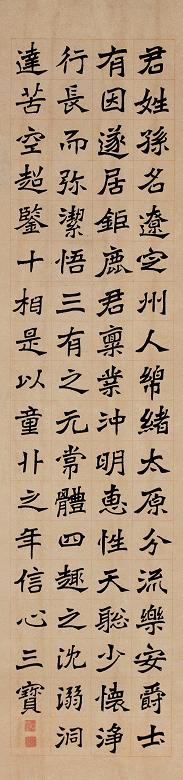 君姓孫名遼定州人綿緒太原分流樂安爵士
有因遂居鉅鹿君稟業沖明惠性天聡少懷淨
行長而弥潔悟三有之元常體四趣之沈溺洞
達苦空超鑒十相是以童丱之年信心三寶